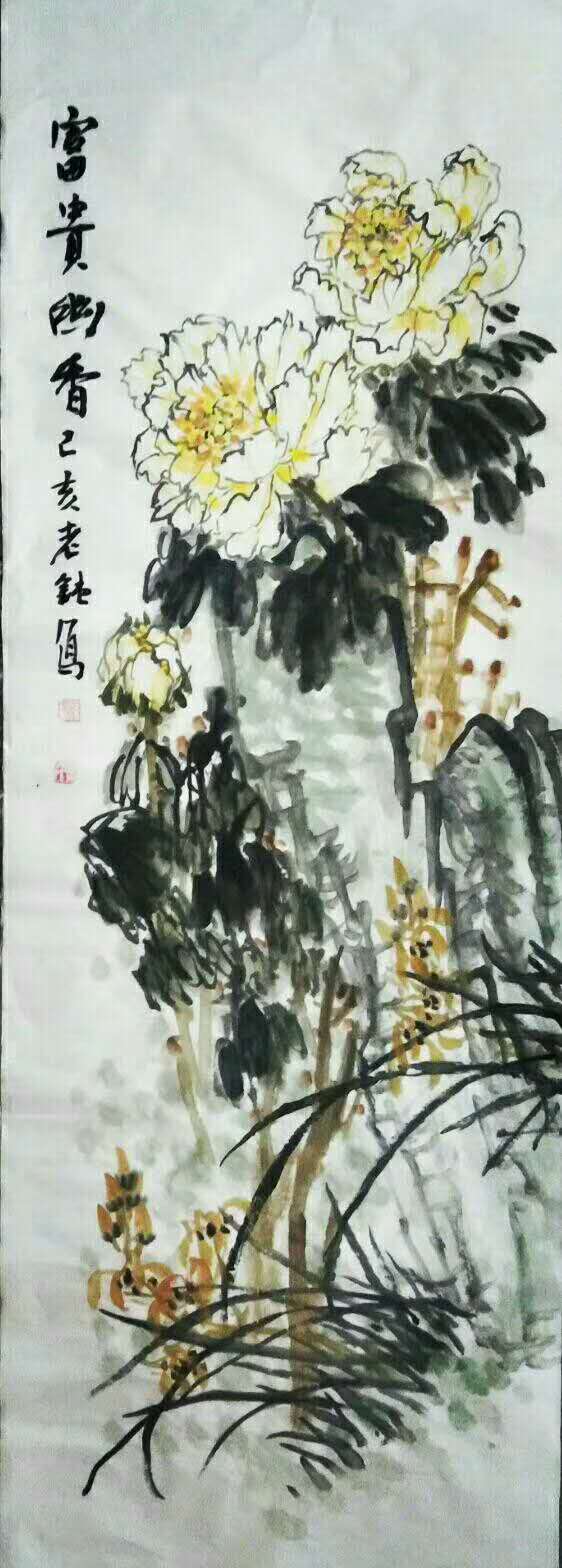 富貴幽香己亥老鈍寫